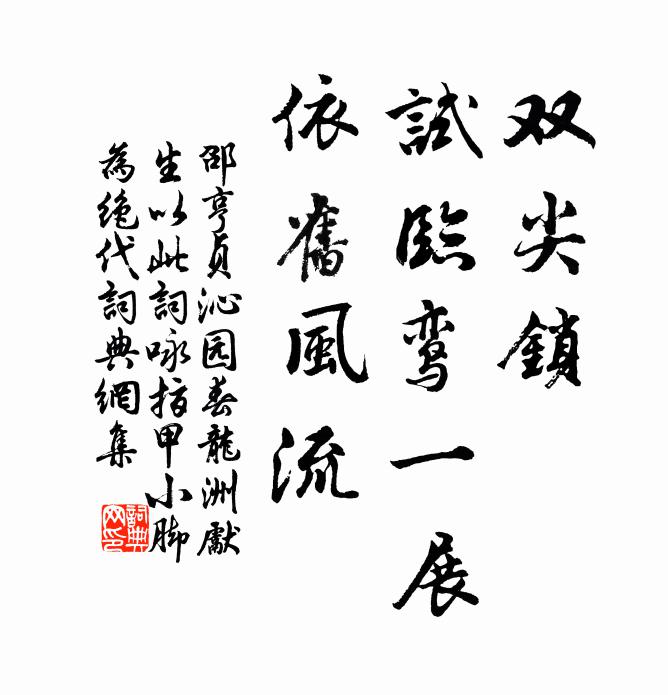 双尖鎖
試臨鸾一展
依舊風流
邵亨貞沁园春龍洲獻
生以此詞咏指甲小脚
為绝代詞典網集
詞典
网印